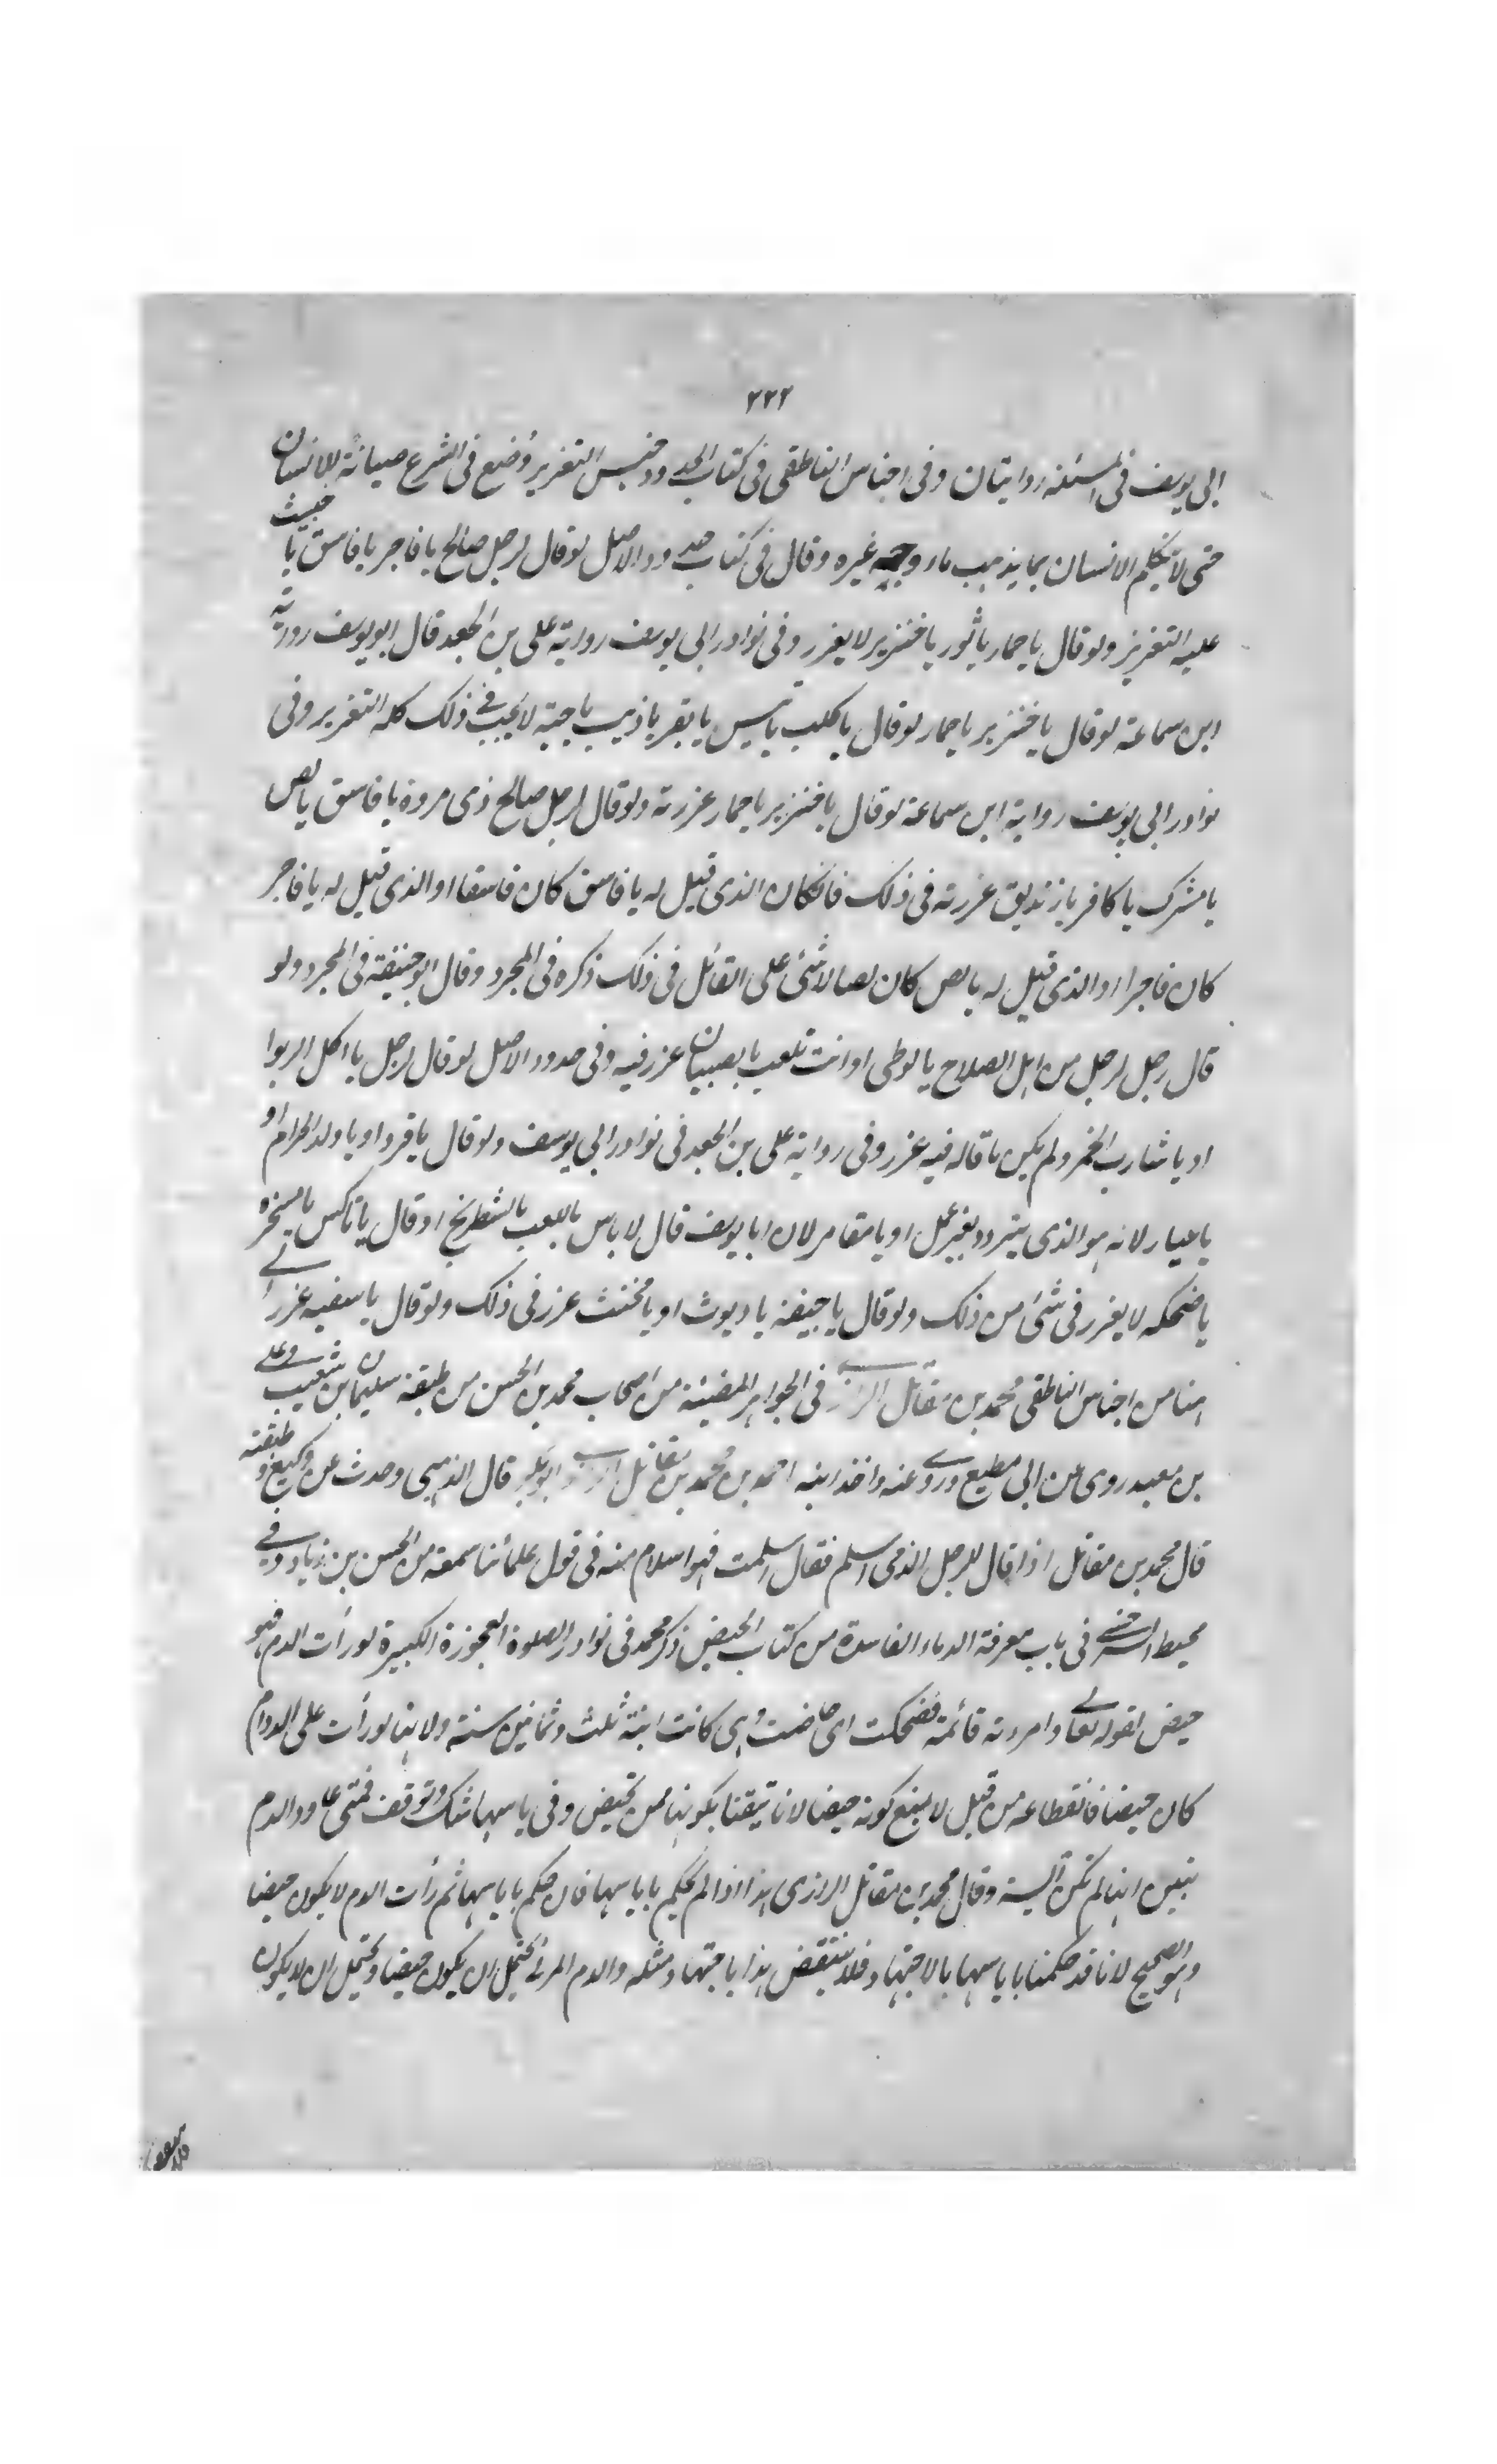 ٢٢٢
ابی یوسف فی المسئلة روایتان وفی اجناس الناطقی فی کتاب الحدود جنس التعزیر وُضع فی الشرع صیانة للانسان
حتی لا یتکلم الانسان بما یذهب ماء وجهه غیره وقال فی کتاب حدود الاصل لو قال لرجل صالح یا فاجر یا فاسق یا خبیث
علیه التعزیز ولو قال یا حمار یا ثور یا خنزیر لا یعزر وفی نوادر ابی یوسف روایة علی بن الجعد قال ابو یوسف روایة
ابن سماعة لو قال یا خنزیر یا حمار لو قال یا کلب یا تیس یا بقر یا ذیب یا حیة لا یجب فی ذلک کله التعزیر وفی
نوادر ابی یوسف روایة ابن سماعة لو قال یا خنزیر یا حمار عزرته ولو قال لرجل صالح ذی مروة یا فاسق یا لص
یا مشرک یا کافر یا زندیق عزرته فی ذلک فانکان الذی قیل له یا فاسق کان فاسقا او الذی قیل له یا فاجر
کان فاجرا او الذی قیل له یا لص کان لصا لا شئ علی القائل فی ذلک ذکره فی المجرد وقال ابو حنیفة فی المجرد ولو
قال رجل لرجل من اهل الصلاح یا لوطی او انت تلعب بالصبیان عزر فیه وفی حدود الاصل لو قال لرجل یا اکل الربوا
او یا شارب الخمر ولم یکن ما قاله فیه عزر وفی روایة علی بن الجعد فی نوادر ابی یوسف ولو قال یا قرد او یا ولد الحرام او
یا عیار لانه هو الذی یتردد بغیر عمل او یا مقامر لان ابا یوسف قال لا باس باللعب بالشطرنج او قال یا ناکس یا مسخره
یا ضحکه لا یعزر فی شئ من ذلک ولو قال یا جیفة یا دیوث او یا مخنث عزر فی ذلک ولو قال یا سفیه عزر الی
هنا من اجناس الناطقی محمد بن مقاتل الرازی فی الجواهر المضیئة من اصحاب محمد بن الحسن من طبقة سلیمان بن شعیب وعلی
بن معبد روی عن ابی مطیع وروی عنه واخذ ابنه احمد بن محمد بن مقاتل ابو بکر قال الذهبی وحدث عن وکیع وطبقته
قال محمد بن مقاتل اذا قال للرجل الذمی اسلم فقال اسلمت فهو اسلام منه فی قول علمائنا سمعته من الحسن بن زیاد وفی
محیط السرخسی فی باب معرفة الدماء الفاسدة من کتاب الحیض ذکر محمد فی نوادر الصلوة العجوزة الکبیرة لو رأت الدم فهو
حیض لقوله تعالی وامرءته قائمة فضحکت ای حاضت وهی کانت ابنة ثلث وثمانین سنة ولانها لو رأت علی الدوام
کان حیضا فانقطاعه من قبل لا یمنع کونه حیضا لانا تیقنا بکونها ممن تحیض وفی یاسها شک وتوقف فمتی عاود الدم
تبین انها لم تکن آئسة وقال محمد بن مقاتل الرازی هذا اذا لم یحکم بایاسها فان حکم بایاسها ثم رأت الدم لا یکون حیضا
وهو الصحیح لانا قد حکمنا بایاسها بالاجتهاد فلا ینتقض هذا باجتهاد مثله والدم المرئی یحتمل ان یکون حیضا ویحتمل ان لا یکون